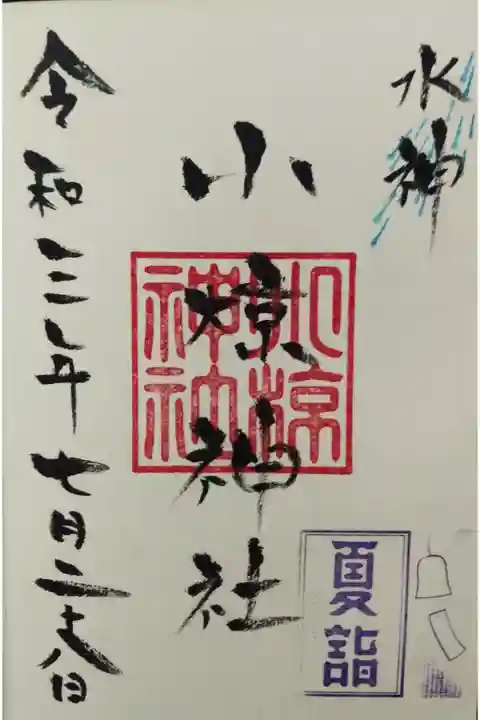 水神
小椋神社
小椋
神社
令和三年七月二十八日
夏詣